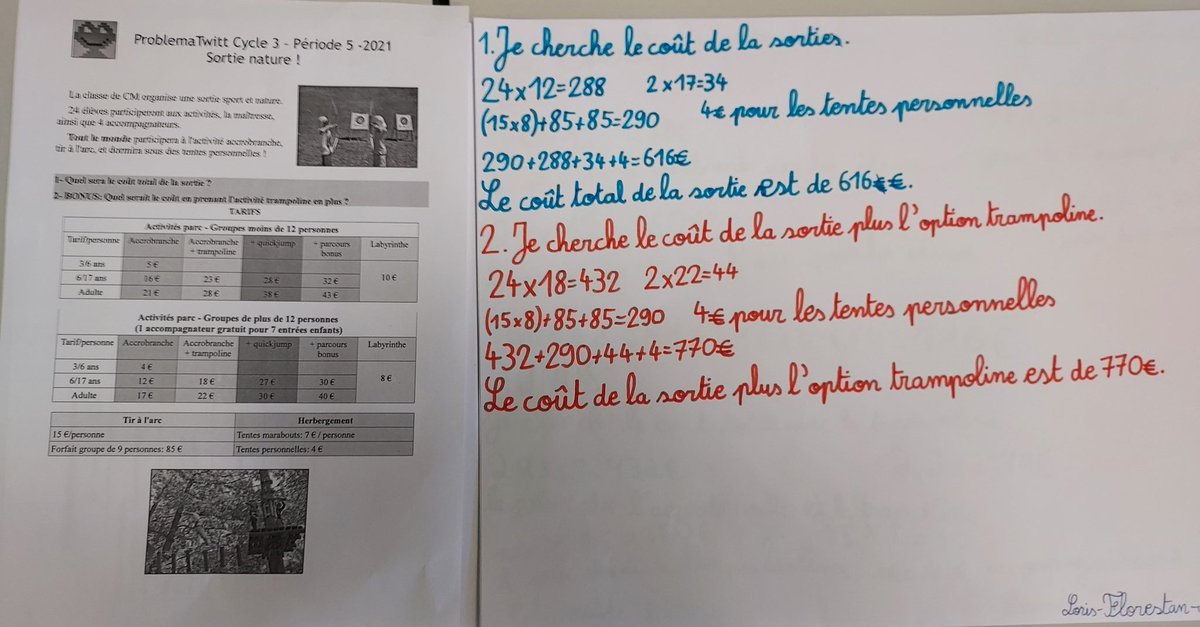 ProblemaTwitt Cycle 3 - Période 5 -2021
Sortie nature !
La classe de CM organise une sortie sport et nature.
24 élèves participeront aux activités, la maîtresse,
ainsi que 4 accompagnateurs.
Tout le monde participera à l'activité accrobranche,
tir à l'arc, et dormira sous des tentes personnelles !
1- Quel sera le coût total de la sortie ?
2- BONUS: Quel serait le coût en prenant l'activité trampoline en plus ?
TARIFS
Activités parc - Groupes moins de 12 personnes
Tarif/personne Accrobranche Accrobranche + trampoline + quickjump + parcours bonus Labyrinthe
3/6 ans 5 €
6/17 ans 16 € 23 € 28 € 32 € 10 €
Adulte 21 € 28 € 38 € 43 €
Activités parc - Groupes de plus de 12 personnes
(1 accompagnateur gratuit pour 7 entrées enfants)
Tarif/personne Accrobranche Accrobranche + trampoline + quickjump + parcours bonus Labyrinthe
3/6 ans 4 €
6/17 ans 12 € 18 € 27 € 30 € 8 €
Adulte 17 € 22 € 30 € 40 €
Tir à l'arc Herbergement
15 €/personne Tentes marabouts: 7 € / personne
Forfait groupe de 9 personnes: 85 € Tentes personnelles: 4 €
1. Je cherche le coût de la sorties.
24x12=288 2x17=34
(15x8)+85+85=290 4€ pour les tentes personnelles
290+288+34+4=616€
Le coût total de la sortie est de 616€.
2. Je cherche le coût de la sortie plus l'option trampoline.
24x18=432 2x22=44
(15x8)+85+85=290 4€ pour les tentes personnelles
432+290+44+4=770€
Le coût de la sortie plus l'option trampoline est de 770€.
Loris-Florestan-